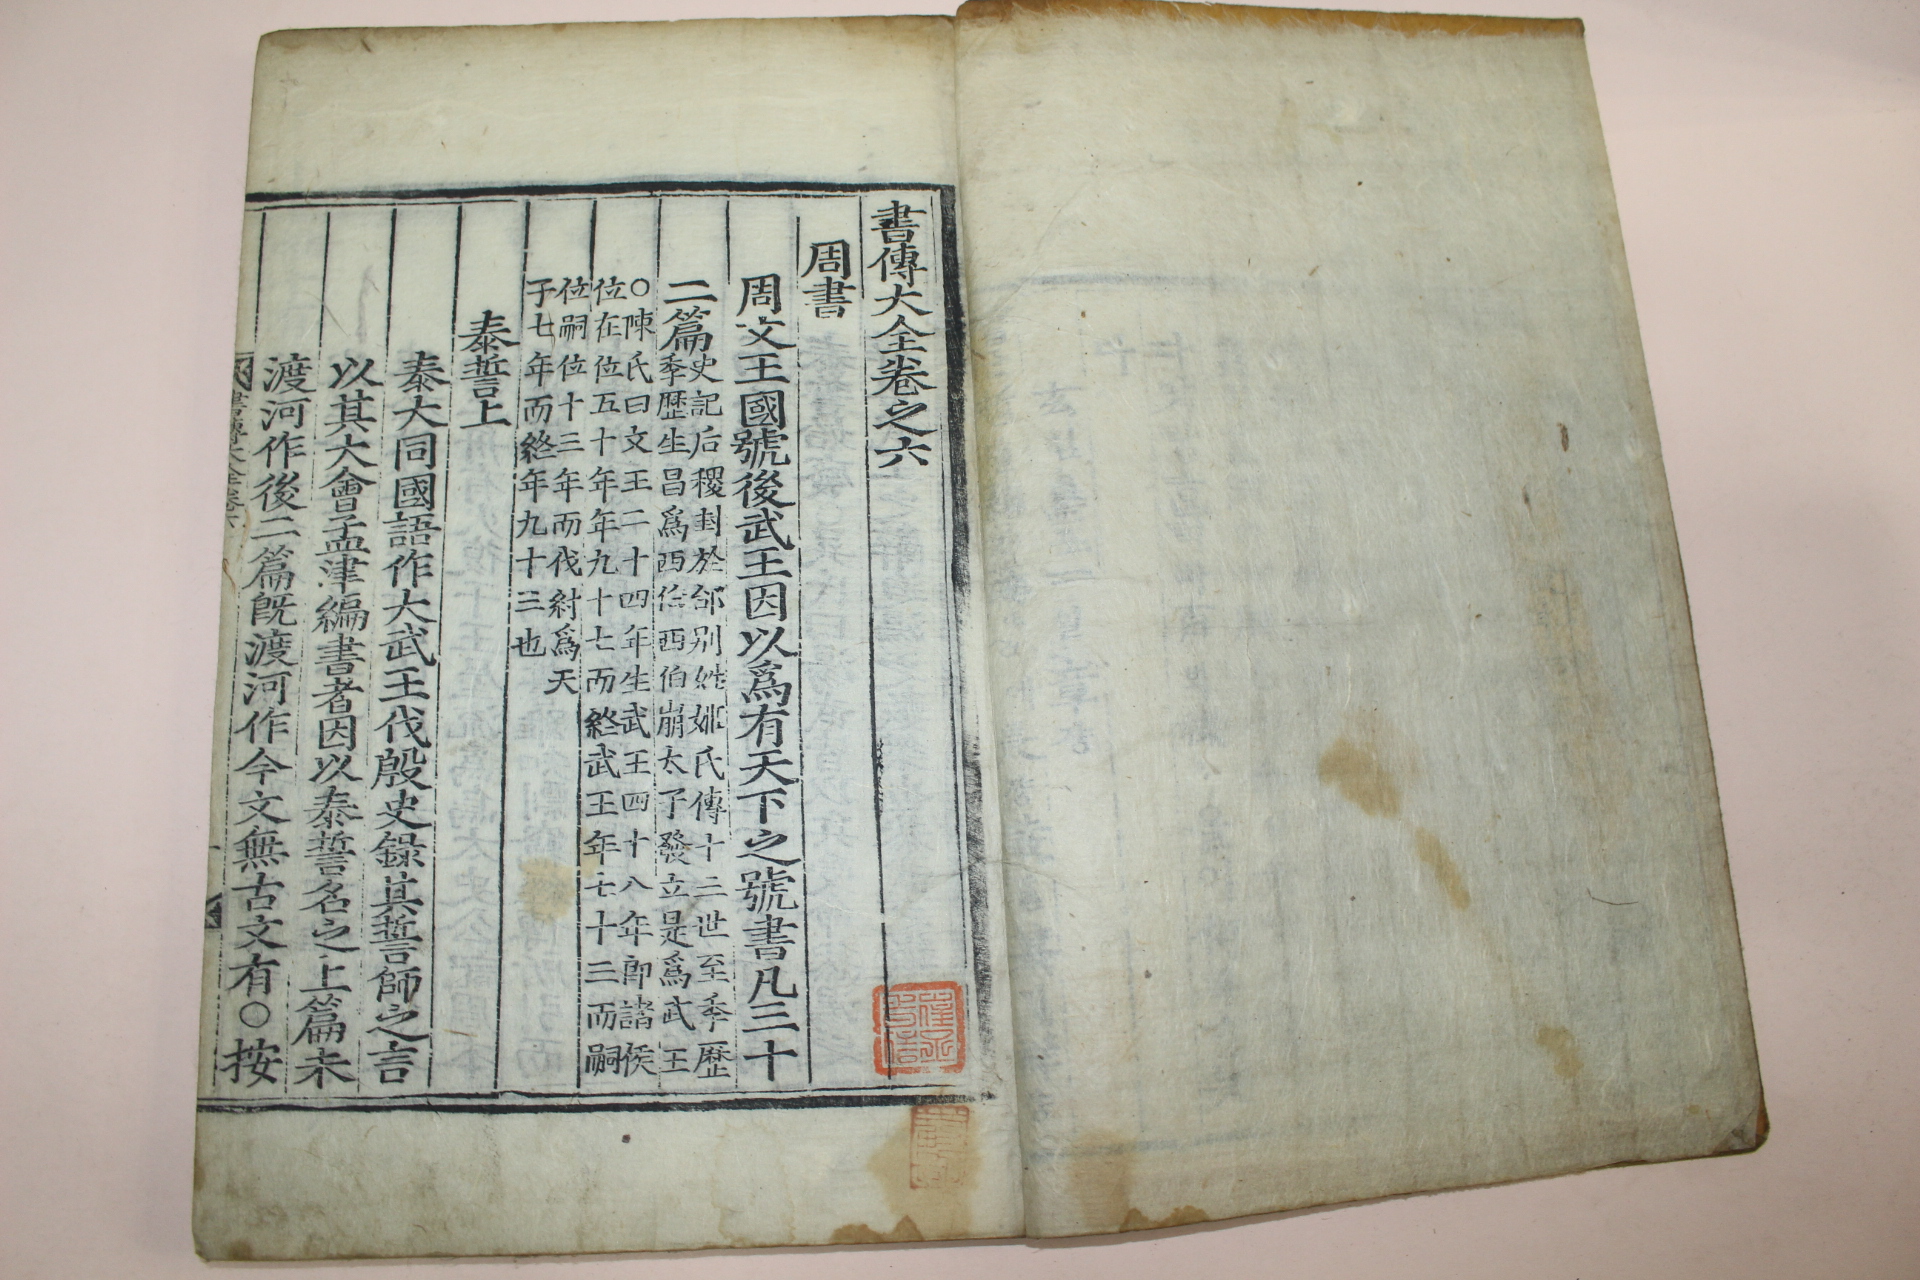 書傳大全卷之六
周書
周文王國號後武王因以爲有天下之號書凡三十
二篇
史記后稷封於邰別姓姬氏傳十二世至季歷
季歷生昌爲西伯西伯崩太子發立是爲武王
○陳氏曰文王二十四年生武王四十八年卽諸侯
位在位五十年年九十七而終武王年七十三而嗣
位嗣位十三年而伐紂爲天
子七年而終年九十三也
泰誓上
泰大同國語作大武王伐殷史錄其誓師之言
以其大會孟津編書者因以泰誓名之上篇未
渡河作後二篇旣渡河作今文無古文有○按
書傳大全卷六